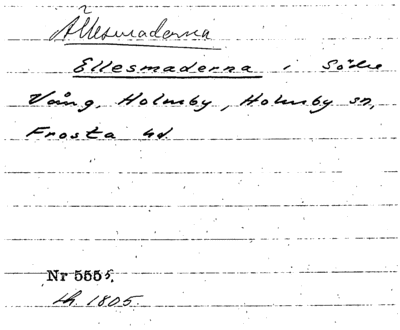 Ällesmaderna
Ellesmaderna i Södre
Vång, Holmby, Holmby sn,
Frosta hd
Nr 5555.
LH. 1805.